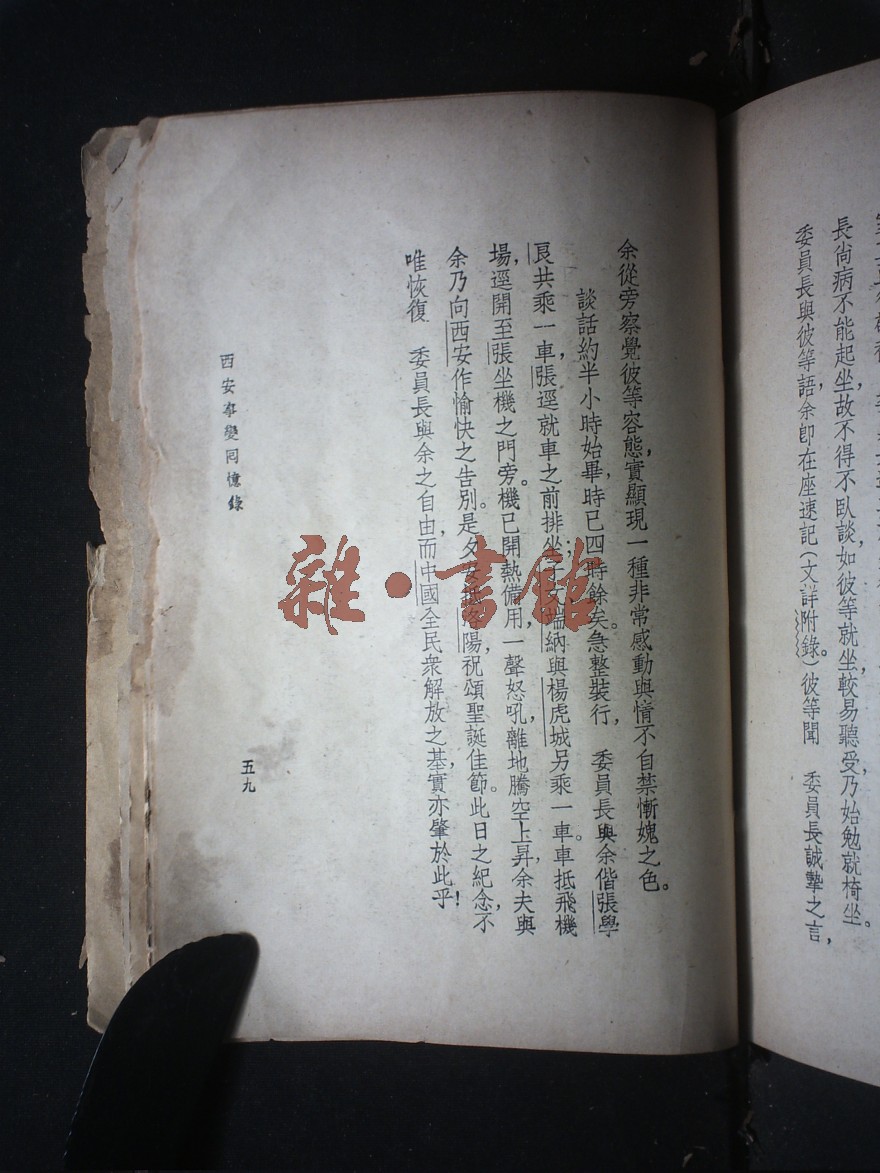 長尙病不能起坐，故不得不臥談，如彼等就坐，較易聽受，乃始勉就椅坐。
委員長與彼等語，余卽在座速記（文詳附錄。）彼等聞　委員長誠摯之言，
余從旁察覺彼等容態，實顯現一種非常感動與情不自禁慚媿之色。
談話約半小時始畢，時已四時餘矣。急整裝行，　委員長與余偕張學
良共乘一車，張逕就車之前排坐；端納與楊虎城另乘一車。車抵飛機
場，逕開至張坐機之門旁。機已開熱備用，一聲怒吼，離地騰空上昇，余夫與
余乃向西安作愉快之告別。是夕安抵洛陽，祝頌聖誕佳節。此日之紀念，不
唯恢復　委員長與余之自由，而中國全民衆解放之基，實亦肇於此乎！
西安事變回憶錄
五九
雜·書館